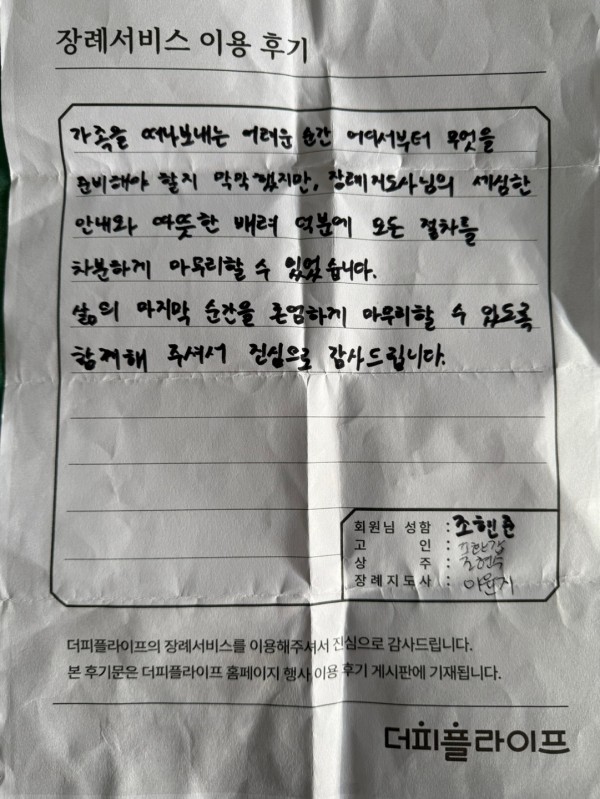 장례서비스 이용 후기
가족을 떠나보내는 어려운 순간 어디서부터 무엇을
준비해야 할지 막막했지만, 장례지도사님의 세심한
안내와 따뜻한 배려 덕분에 모든 절차를
차분하게 마무리할 수 있었습니다.
삶의 마지막 순간을 존엄하게 마무리할 수 있도록
함께해 주셔서 진심으로 감사드립니다.
회원님 성함 :
고 인 :
상 주 :
장례지도사 :
더피플라이프의 장례서비스를 이용해주셔서 진심으로 감사드립니다.
본 후기문은 더피플라이프 홈페이지 행사 이용 후기 게시판에 기재됩니다.
더피플라이프